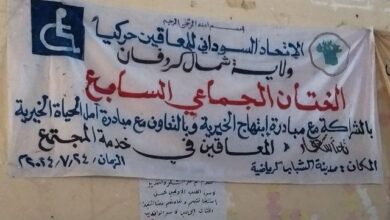 بسم الله الرحمن الرحيم
الإتحاد السوداني للمعاقين حركيا
ولاية شمال كردفان
الختان الجماعي السابع
بالشراكة مع مبادرة إبتهاج الخيرية وبالتعاون مع مبادرة أمل الحياة الخيرية
تحت شعار: المعاقين في خدمة المجتمع
المكان: مدينة الشباب الرياضية الزمان: ٢٠٢٤/٧/٢٤